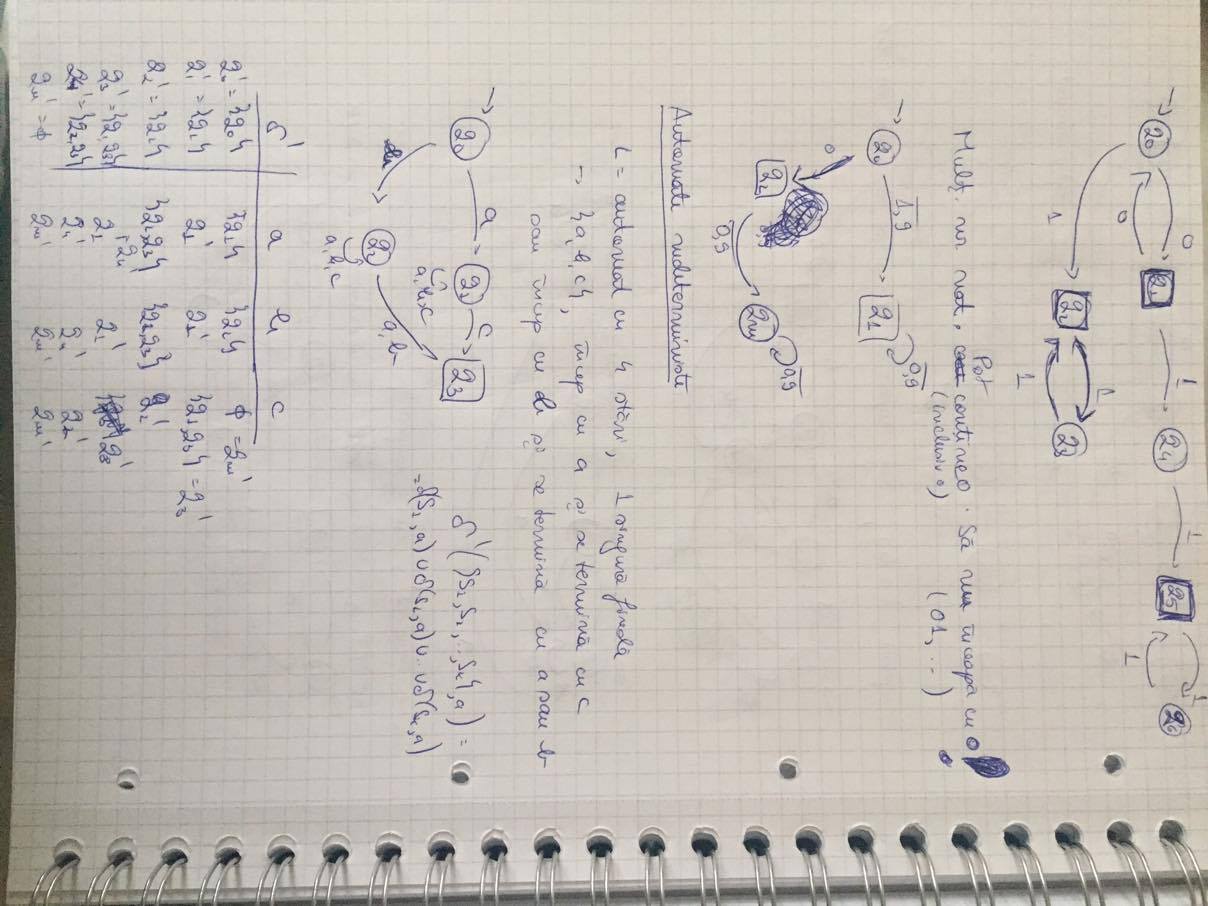 → q0 0 q1 1 q4 1 q5 1 q6
0 1
1 q2 1 q3
1
Mulț. nr nat, Pot conține 0. Să nu înceapă cu 0
(inclusiv 0) (01, ...)
→ q0 1,9 q1 0,9
0 q2 0,9 qm 0,9
Automate nedeterministe
L = automat cu 4 stări, 1 singură finală
→ {a,b,c}, încep cu a și se termină cu c
sau încep cu b și se termină cu a sau b
→ q0 a q1 c q3
a,b,c
b q2 a,b
a,b,c
δ'({S1,S2,...,Sk},a) =
= δ(S1,a) ∪ δ(S2,a) ∪ .. ∪ δ(Sk,a)
δ' a b c
q0' = {q0} {q1} {q2} ϕ = qm'
q1' = {q1} q1' q1' {q1,q3} = q3'
q2' = {q2} {q2,q3} {q2,q3} q2'
q3' = {q1,q3} q1' q1' q3'
q4' = {q2,q3} q4' q4' q2'
qm' = ϕ qm' qm' qm'